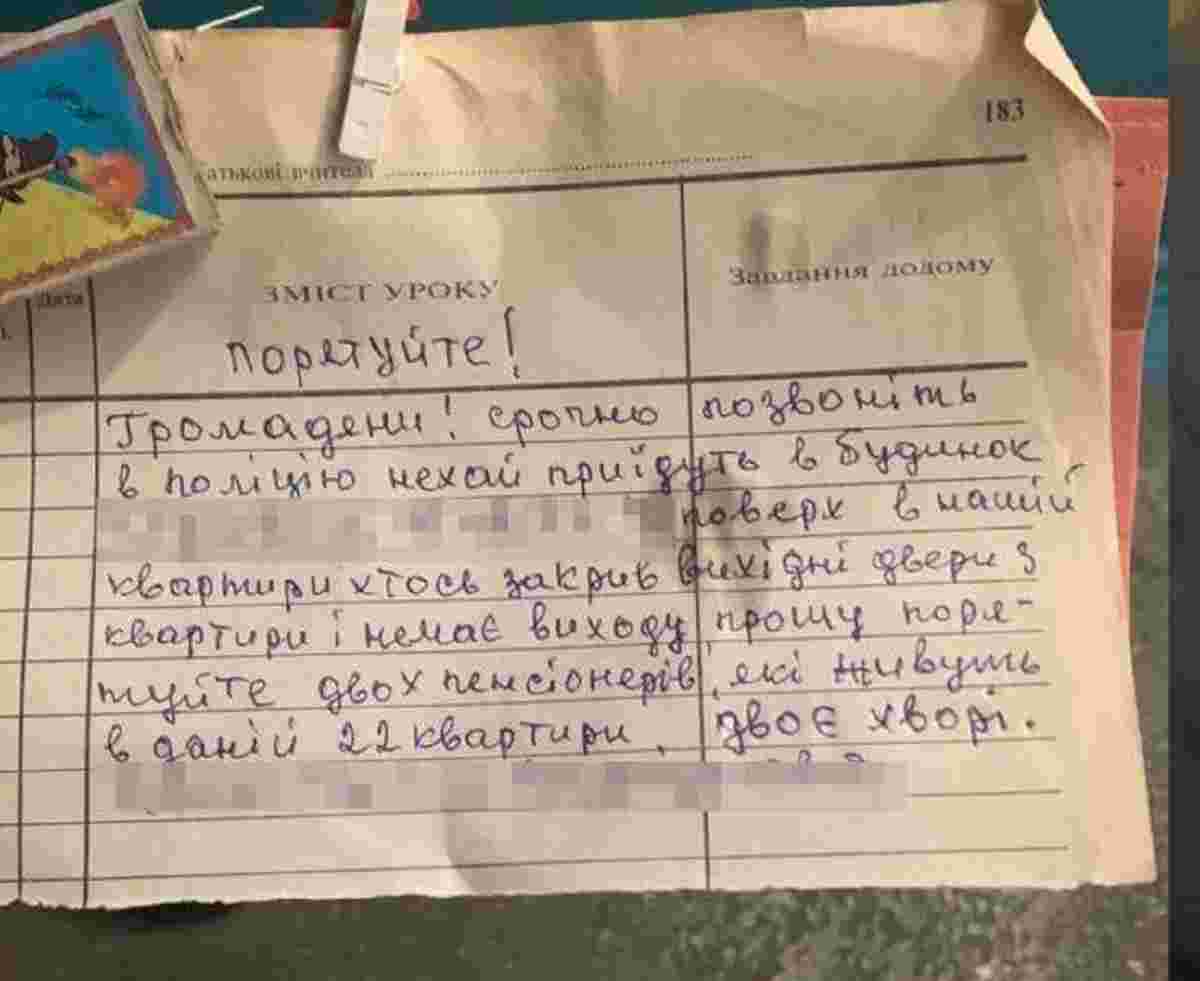 183
Дата
ЗМІСТ УРОКУ
Завдання додому
порятуйте!
Громадени! срочно позвоніть
в поліцію нехай приїдуть в будинок
поверх в нашій
квартири хтось закрив вихідні двери з
квартири і немає виходу, прошу поря-
туйте двох пенсіонерів, які живуть
в даній 22 квартири, двоє хворі.